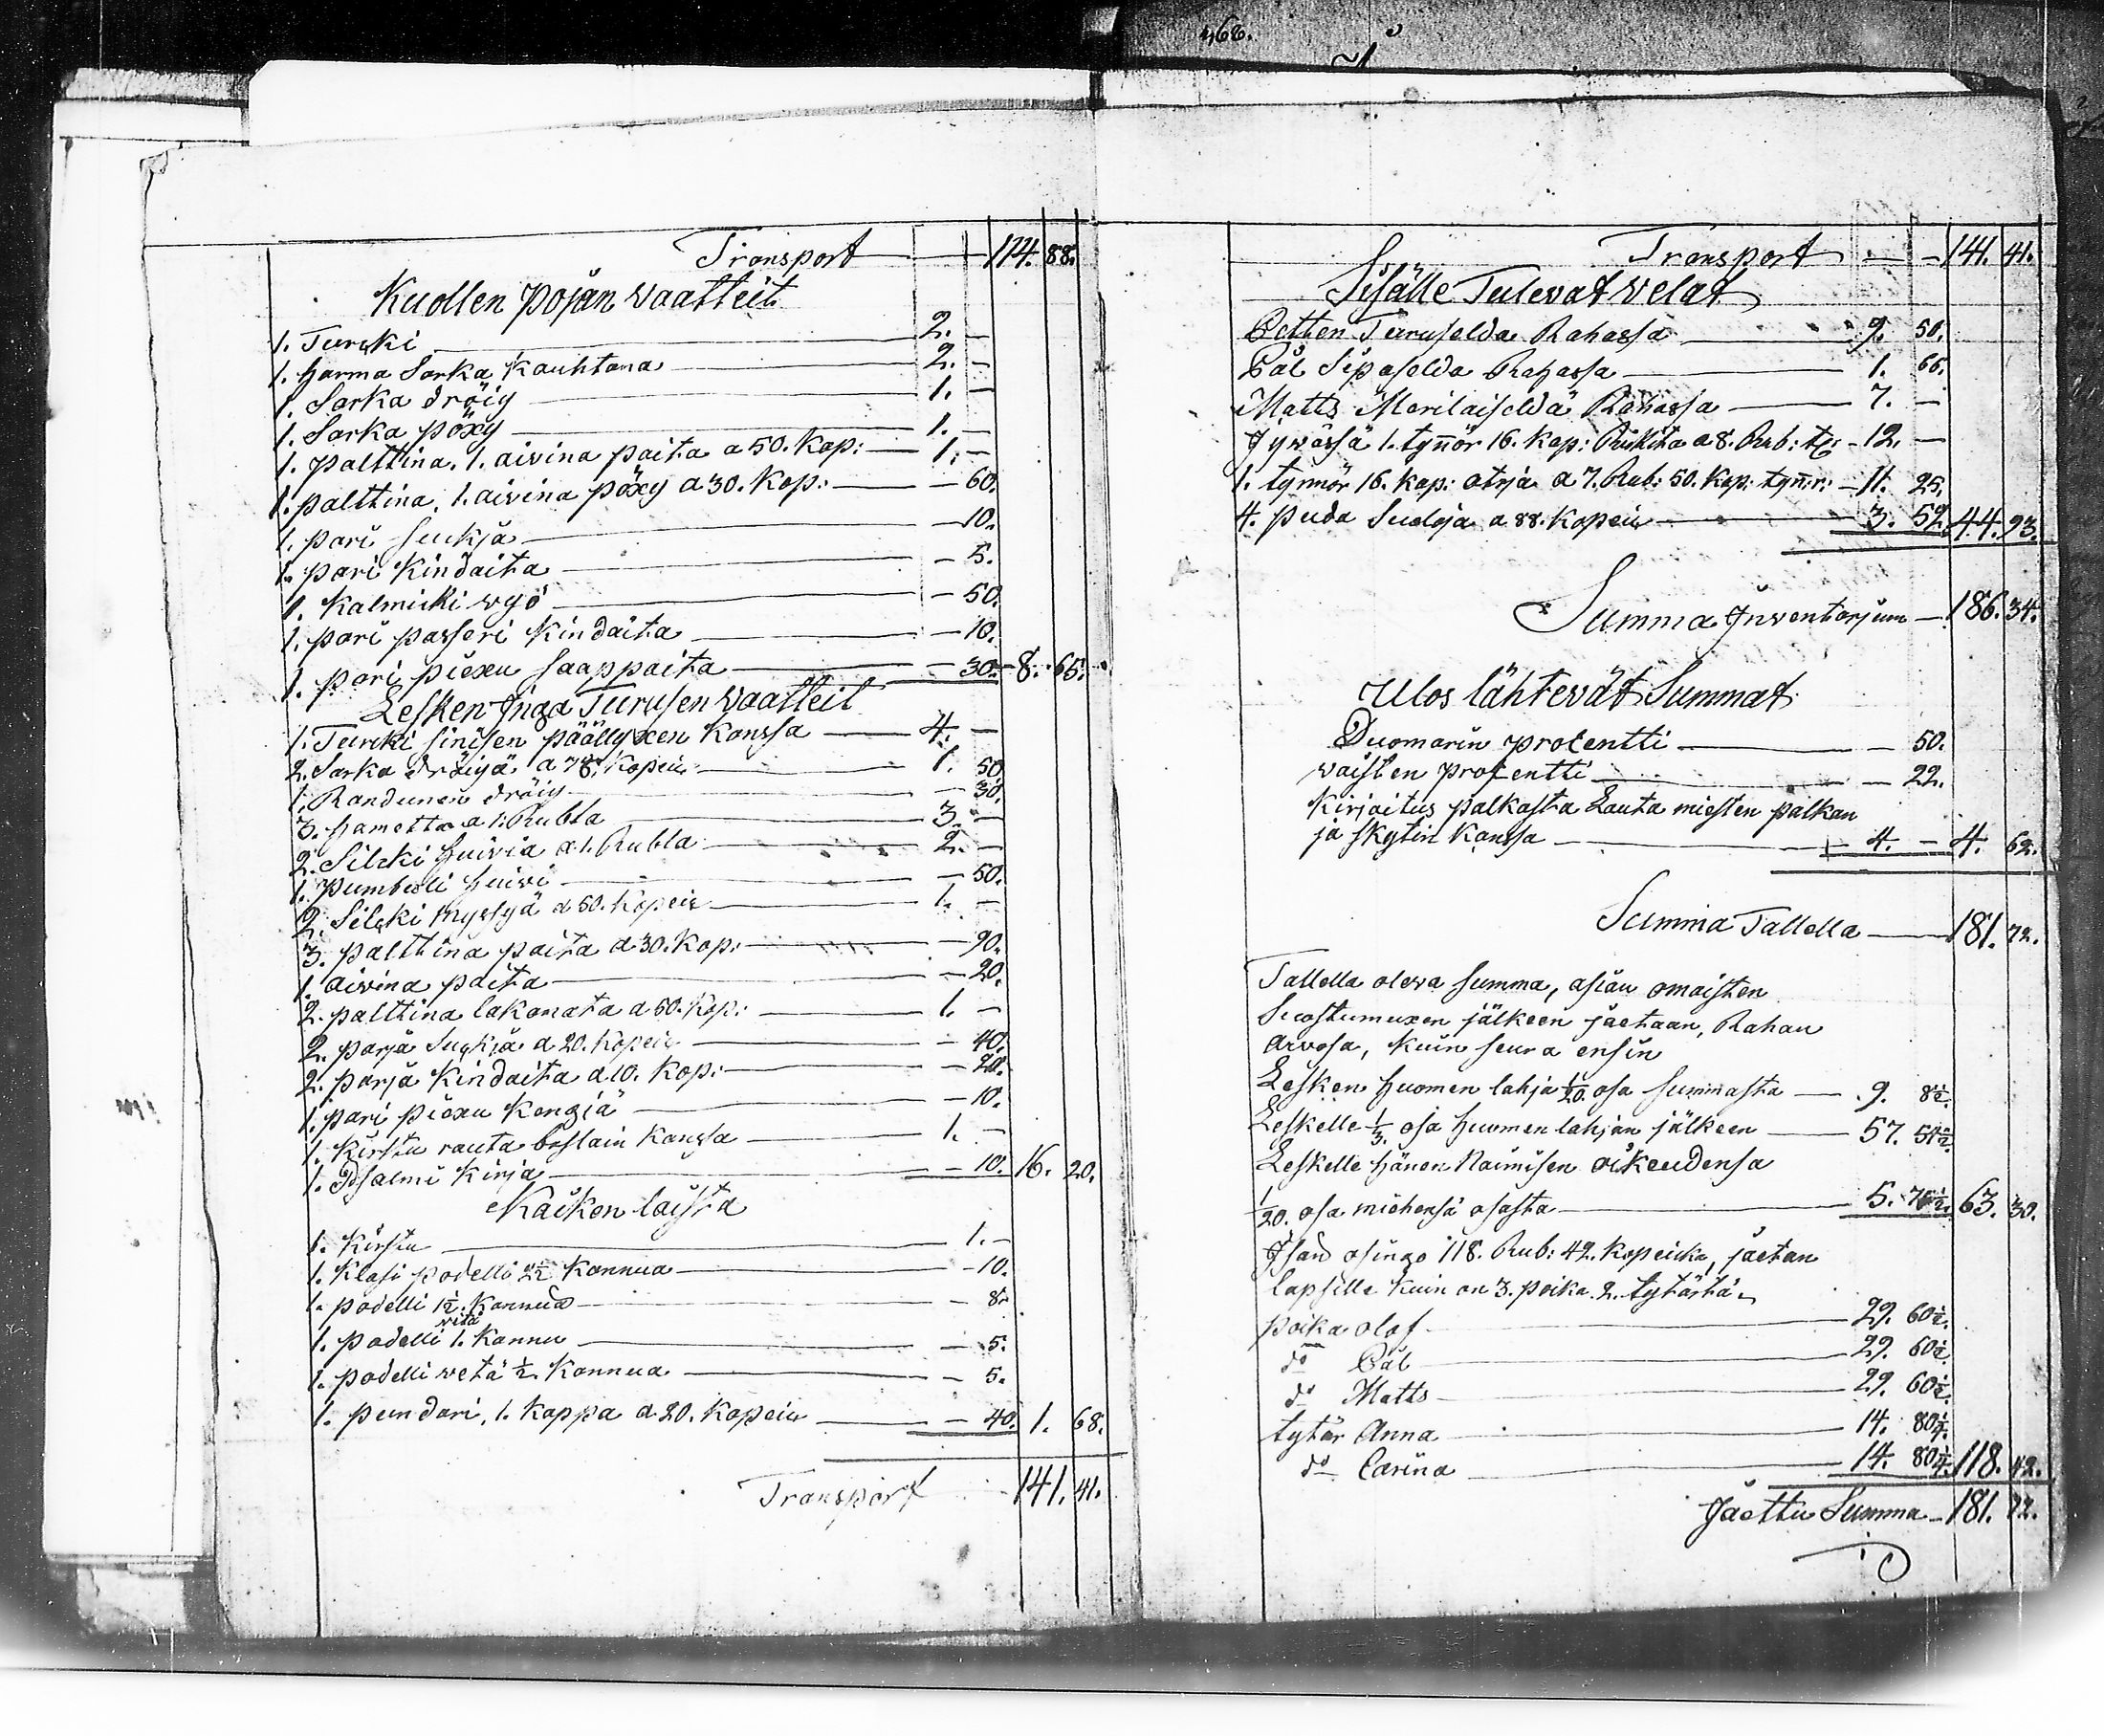 468.
Transport 114. 88.
Kuollen pojan vaatteit
1. Turcki 2. —
1. harma Sarka Kauhtana 2. —
1. Sarka dröiy 1. —
1. Sarka pöxy 1. —
1. palttina, 1. aivina paita a 50. Kop: 1. —
1. palttina, 1. aivina pöxy a 30. Kop: — 60.
1. pari sukja — 10.
1. pari Kindaita — 5.
1. Kalmicki vyö — 50.
1. pari passeri Kindaita — 10.
1. pari piexu saappaita — 30. 8. 65.
Lesken Inga Turusen vaatteit
1. Turcki sinisen päällyxen Kanssa 4. —
2. Sarka dröiyä a 75. Kopeic 1. 50
1. Randunen dröiy — 30.
3. hametta a 1. Rubla 3. —
2. Silcki huivia a 1. Rubla 2. —
1. pumbuli huivi — 50.
2. Silcki myssyä a 50. Kopeic 1. —
3. palttina paita a 30. Kop: — 90.
1. aivina paita — 20.
2. palttina lakanata a 50. Kop: 1. —
2. parja Sukja a 20. Kopeic — 40.
2. parja Kindaita a 10. Kop: — 20.
1. pari piexu Kengiä — 10.
1. Kirstu rauta beslain Kanssa 1. —
1. Psalmi Kirja — 10. 16. 20.
Kaiken laista
1. Kirstu 1. —
1. Klasi podelli 2½ Kannua — 10.
1. podelli 1½ Kannua — 8.
1. podelli vetä 1. Kannu — 5.
1. podelli vetä ½ Kannua — 5.
1. pundari, 1. Kappa a 20. Kopeic — 40. 1. 68.
Transport 141. 41.
Transport — 141. 41.
Sisälle Tulevat velat
Petter Turuselda Rahassa 9. 50.
Pål Sipaselda Rahassa 1. 66.
Matts Meriläiseldä Rahassa 7. —
Jyvässä 1. tynnör 16. kap: Rukita a 8. Rub: tr 12. —
1. tynnör 16. kap: otrja a 7. Rub: 50. Kop: tynnr: 11. 25.
4. puda Suoloja a 88. Kopeic 3. 52. 44. 93.
Summa Inventarjum 186. 34.
Ulos lähtevät Summat
Duomarin procentti — 50.
vaisten procentti — 22.
Kirjoitus palkasta Lauta miesten palkan
ja skytin Kanssa 4. — 4. 62.
Summa Tallella 181. 72.
Tallella oleva summa, asian omaisten
Suostumuxen jälkeen jaetaan, Rahan
arvosa, kuin seura ensin
Lesken huomen lahja 1/20. osa summasta 9. 8½.
Leskelle 1/3. osa huomen lahjan jälkeen 57. 54½.
Leskelle hänen Naimisen oikeudensa
1/20. osa miehensä osasta 5. 76½ 63. 30.
Isän osingo 118. Rub: 42. Kopeicka, jaetan
lapsille kuin on 3. poika 2. tytärtä
poika Olof 29. 60½.
do Pål 29. 60½.
do Matts 29. 60½.
tytär Anna 14. 80¼.
do Carina 14. 80¼. 118. 42.
Jaettu Summa 181. 72.